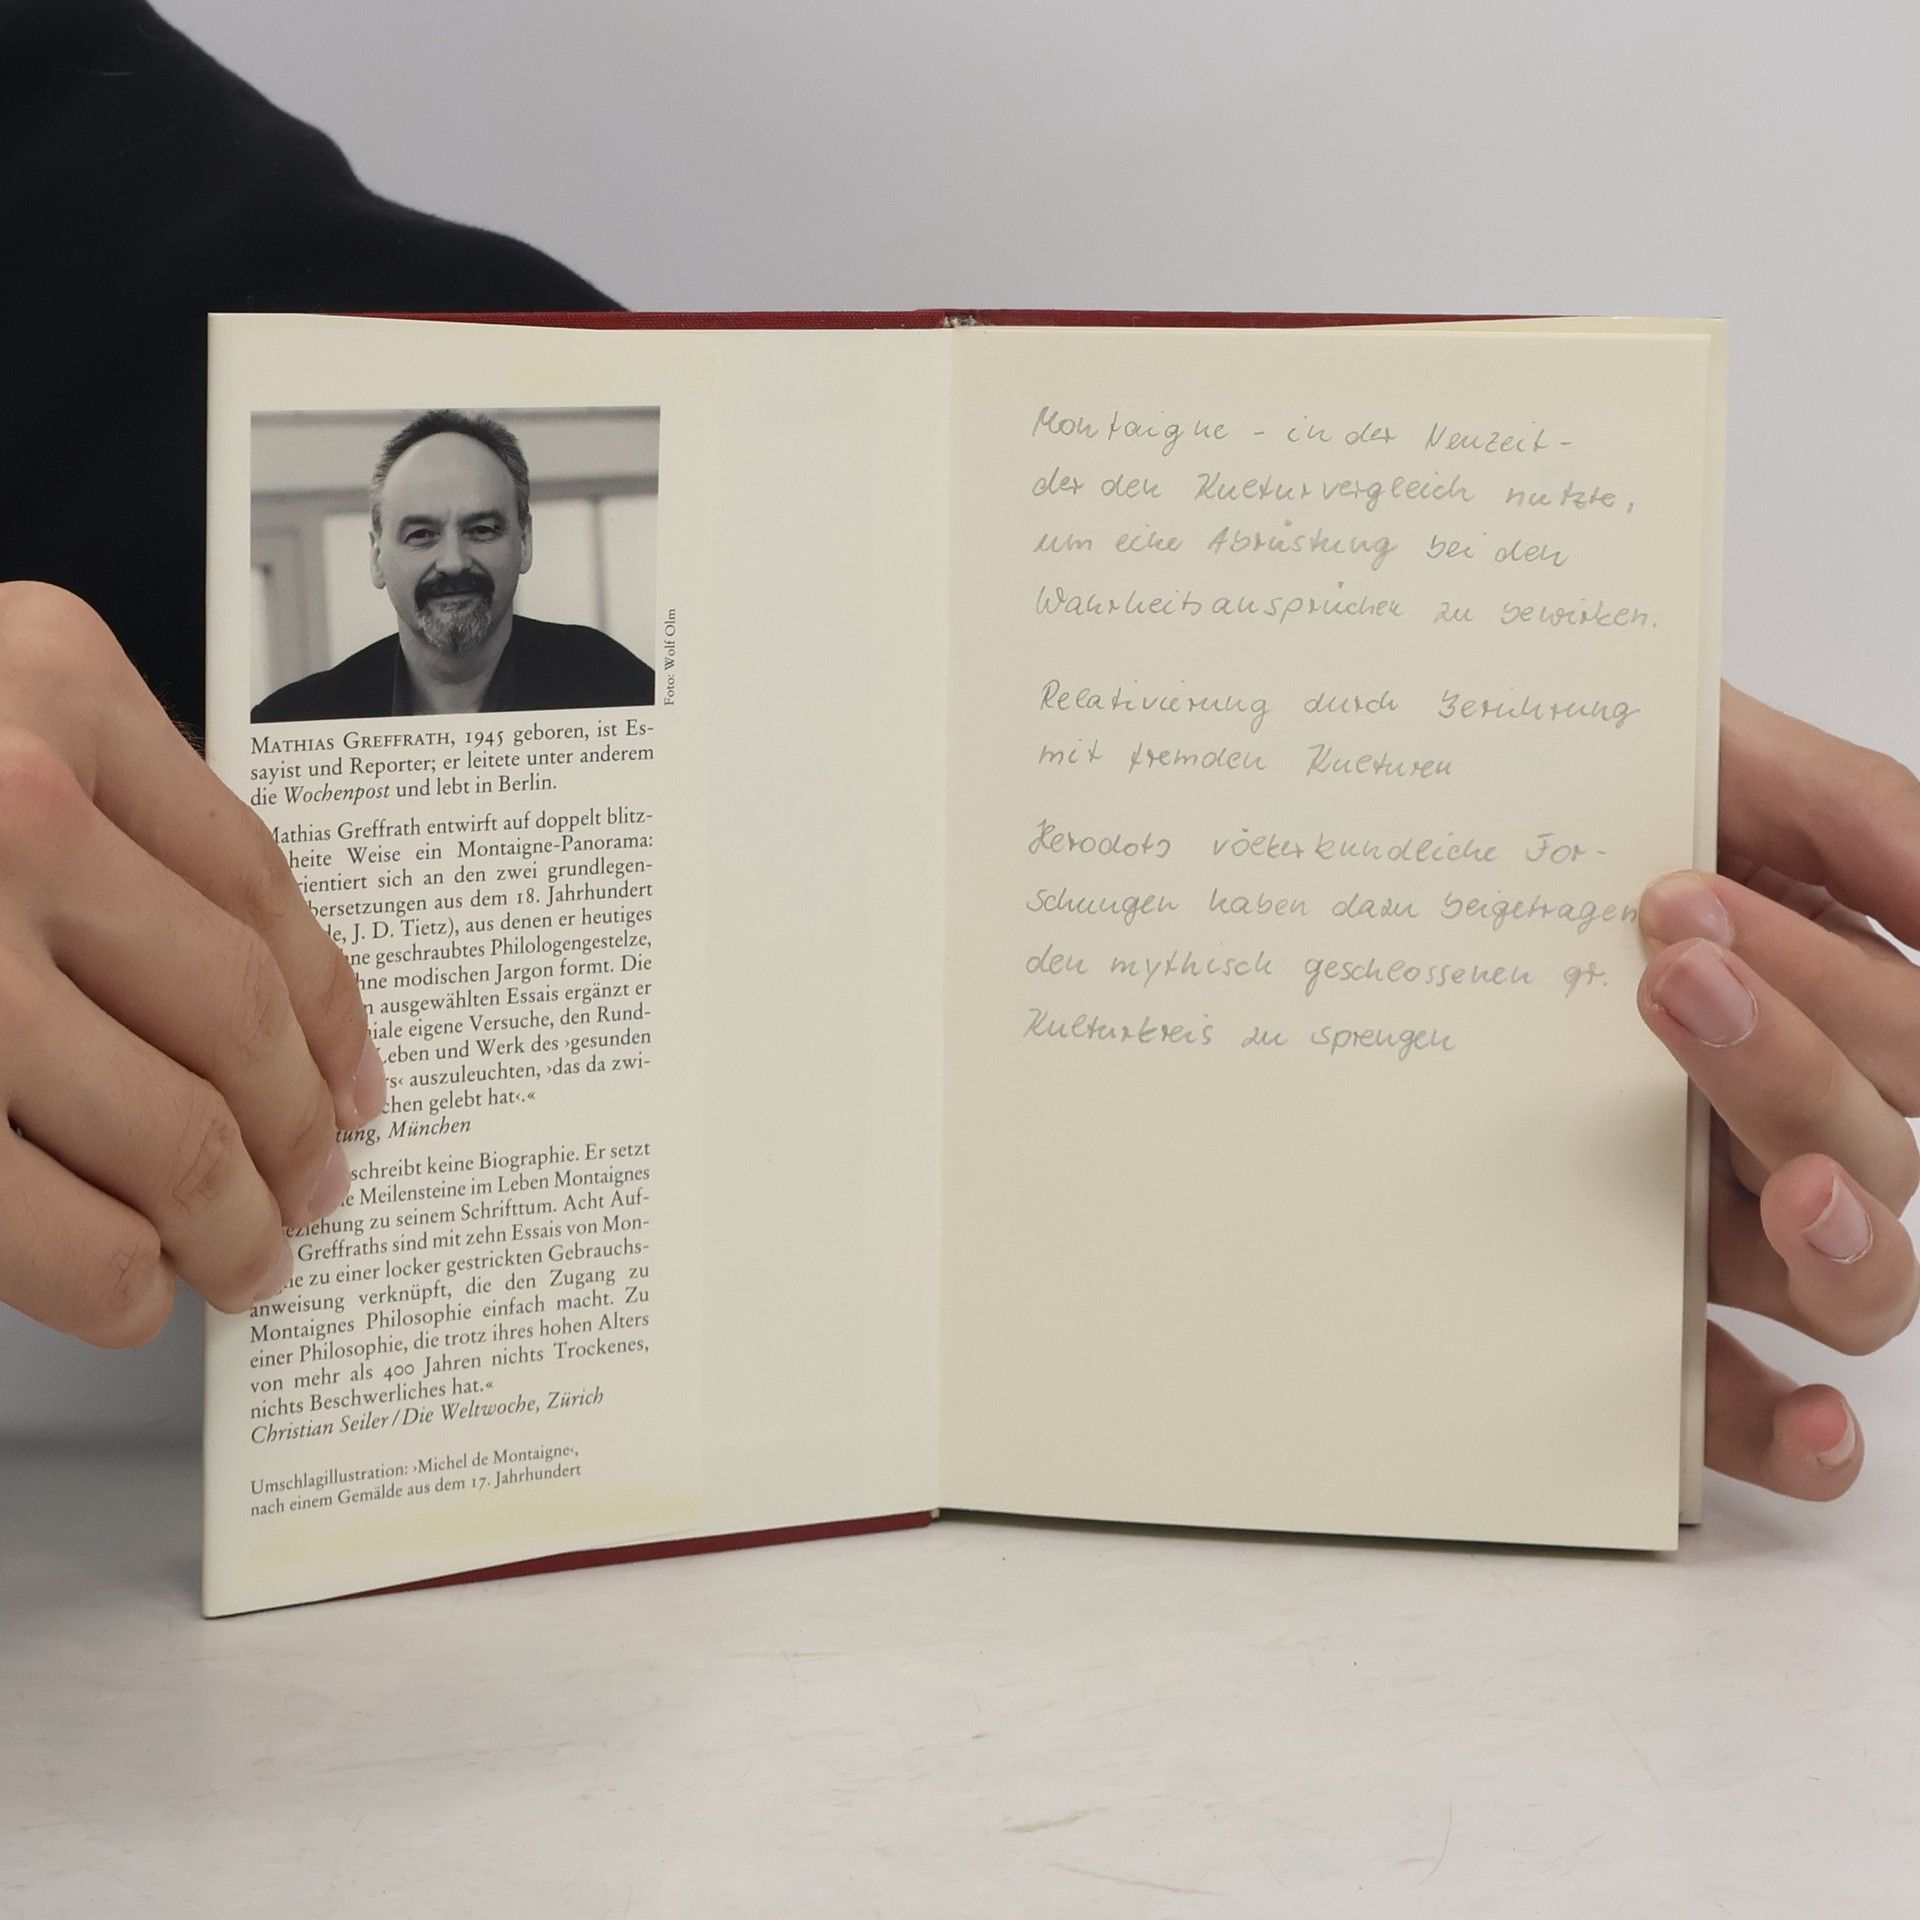 Foto: Wolf Olm
MATHIAS GREFFRATH, 1945 geboren, ist Es-
sayist und Reporter; er leitete unter anderem
die Wochenpost und lebt in Berlin.
Mathias Greffrath entwirft auf doppelt blitz-
heite Weise ein Montaigne-Panorama:
rientiert sich an den zwei grundlegen-
bersetzungen aus dem 18. Jahrhundert
de, J. D. Tietz), aus denen er heutiges
ne geschraubtes Philologengestelze,
hne modischen Jargon formt. Die
n ausgewählten Essais ergänzt er
iale eigene Versuche, den Rund-
Leben und Werk des ›gesunden
rs‹ auszuleuchten, ›das da zwi-
chen gelebt hat‹.«
tung, München
schreibt keine Biographie. Er setzt
e Meilensteine im Leben Montaignes
eziehung zu seinem Schrifttum. Acht Auf-
Greffraths sind mit zehn Essais von Mon-
ne zu einer locker gestrickten Gebrauchs-
anweisung verknüpft, die den Zugang zu
Montaignes Philosophie einfach macht. Zu
einer Philosophie, die trotz ihres hohen Alters
von mehr als 400 Jahren nichts Trockenes,
nichts Beschwerliches hat.«
Christian Seiler / Die Weltwoche, Zürich
Umschlagillustration: ›Michel de Montaigne‹,
nach einem Gemälde aus dem 17. Jahrhundert
Montaigne - in der Neuzeit -
der den Kulturvergleich nutzte,
um eine Abrüstung bei den
Wahrheitsansprüchen zu bewirken.
Relativierung durch Berührung
mit fremden Kulturen
Herodots völkerkundliche For-
schungen haben dazu beigetragen
den mythisch geschlossenen gr.
Kulturkreis zu sprengen